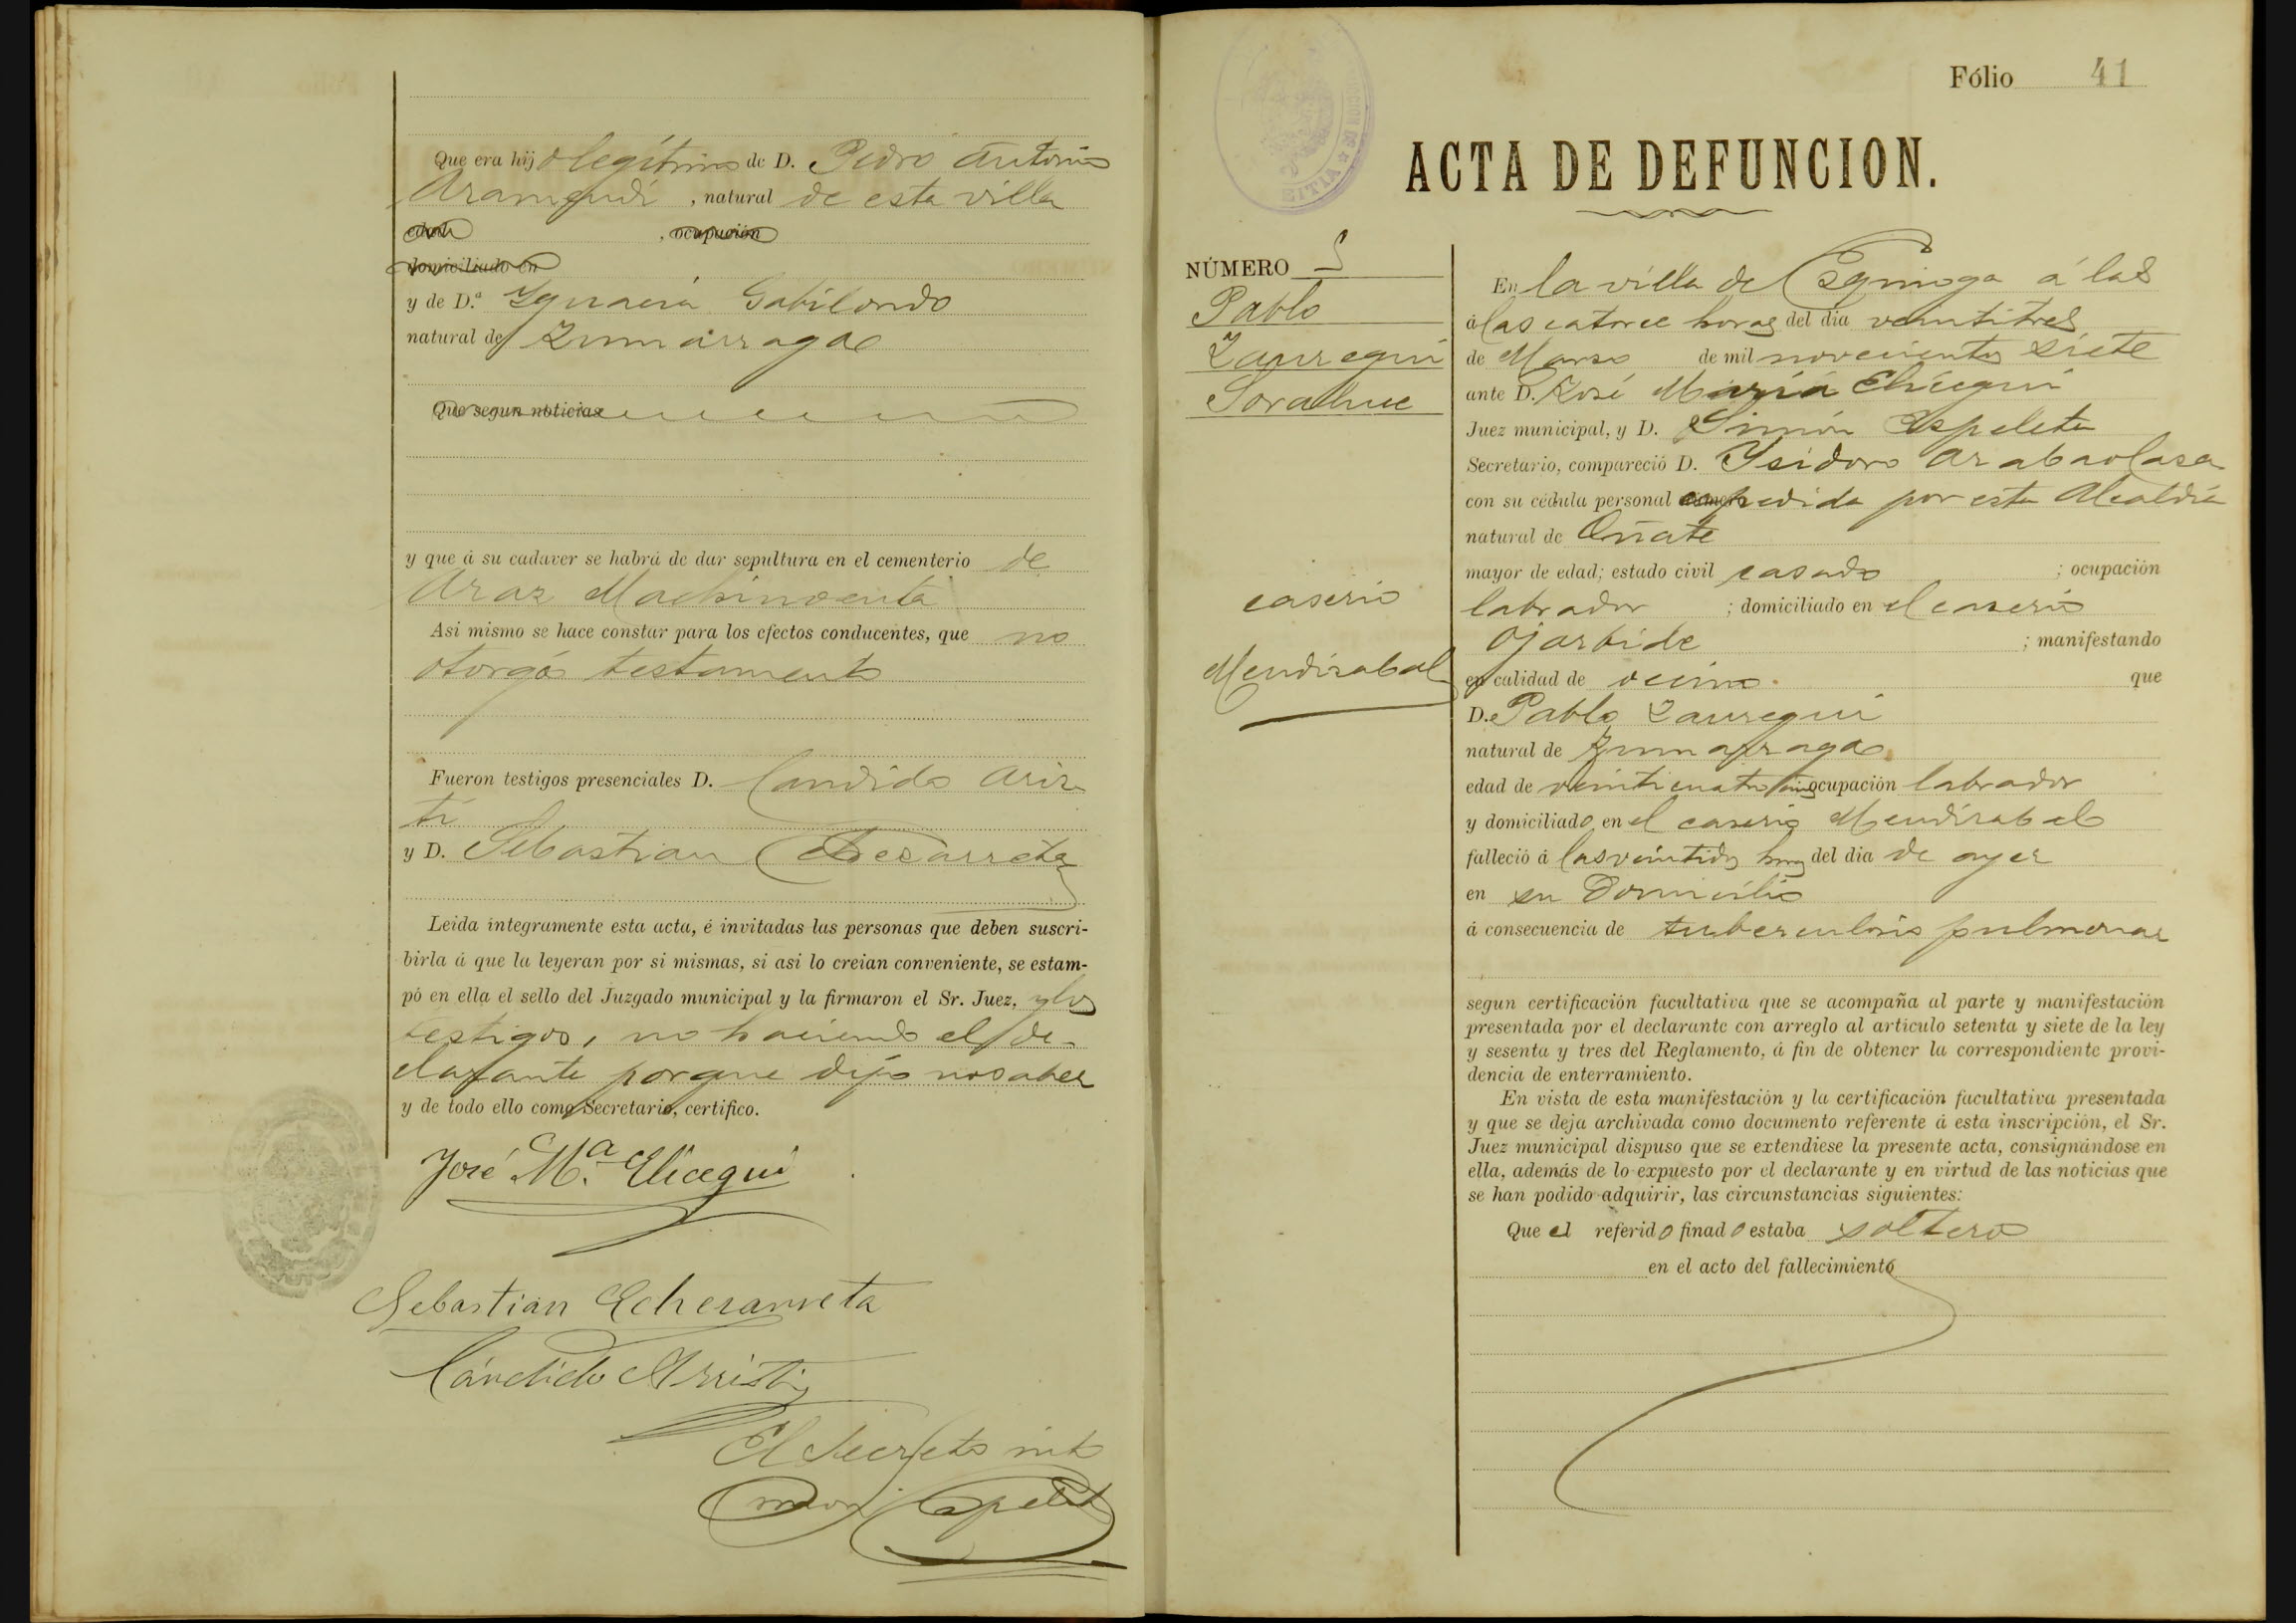 Que era hijo legítimo de D. Pedro Antonio
Aramendi , natural de esta villa
edad , ocupación
domiciliado en
y de D.ª Ygnacia Gabilondo
natural de Zumarraga
Que segun noticias
y que á su cadaver se habrá de dar sepultura en el cementerio de
Araz Machinventa
Asi mismo se hace constar para los efectos conducentes, que no
otorgó testamento
Fueron testigos presenciales D. Candido Ariz
ti
y D. Sebastian Echezarreta
Leida íntegramente esta acta, é invitadas las personas que deben suscri-
birla á que la leyeran por si mismas, si asi lo creian conveniente, se estam-
pó en ella el sello del Juzgado municipal y la firmaron el Sr. Juez, y los
testigos, no haciendo el de-
clarante porque dijo no saber
y de todo ello como Secretario, certifico.
José M.ª Elicegui
Sebastian Echezarreta
Cándido Aristi
El Secret.º int.º
Simon Espeleta
Fólio 41
ACTA DE DEFUNCION.
NÚMERO 5
Pablo
Zauregui
Soraluce
caserio
Mendizabal
En la villa de Ezquioga á las
á las catorce horas del dia veintitres
de Marzo de mil novecientos siete
ante D. José María Elicegui
Juez municipal, y D. Simón Espeleta
Secretario, compareció D. Ysidoro Arabaolaza
con su cédula personal expedida por esta Alcaldía
natural de Oñate
mayor de edad; estado civil casado ; ocupación
labrador ; domiciliado en el caserio
Ojarbide ; manifestando
en calidad de vecino que
D. Pablo Zauregui
natural de Zumarraga
edad de veinticuatro años ocupación labrador
y domiciliado en el caserio Mendizabal
falleció á las veintidos horas del dia de ayer
en su Domicilio
á consecuencia de tuberculosis pulmonar
segun certificación facultativa que se acompaña al parte y manifestación
presentada por el declarante con arreglo al artículo setenta y siete de la ley
y sesenta y tres del Reglamento, á fin de obtener la correspondiente provi-
dencia de enterramiento.
En vista de esta manifestación y la certificación facultativa presentada
y que se deja archivada como documento referente á esta inscripción, el Sr.
Juez municipal dispuso que se extendiese la presente acta, consignándose en
ella, además de lo expuesto por el declarante y en virtud de las noticias que
se han podido adquirir, las circunstancias siguientes:
Que el referido finado estaba soltero
en el acto del fallecimiento